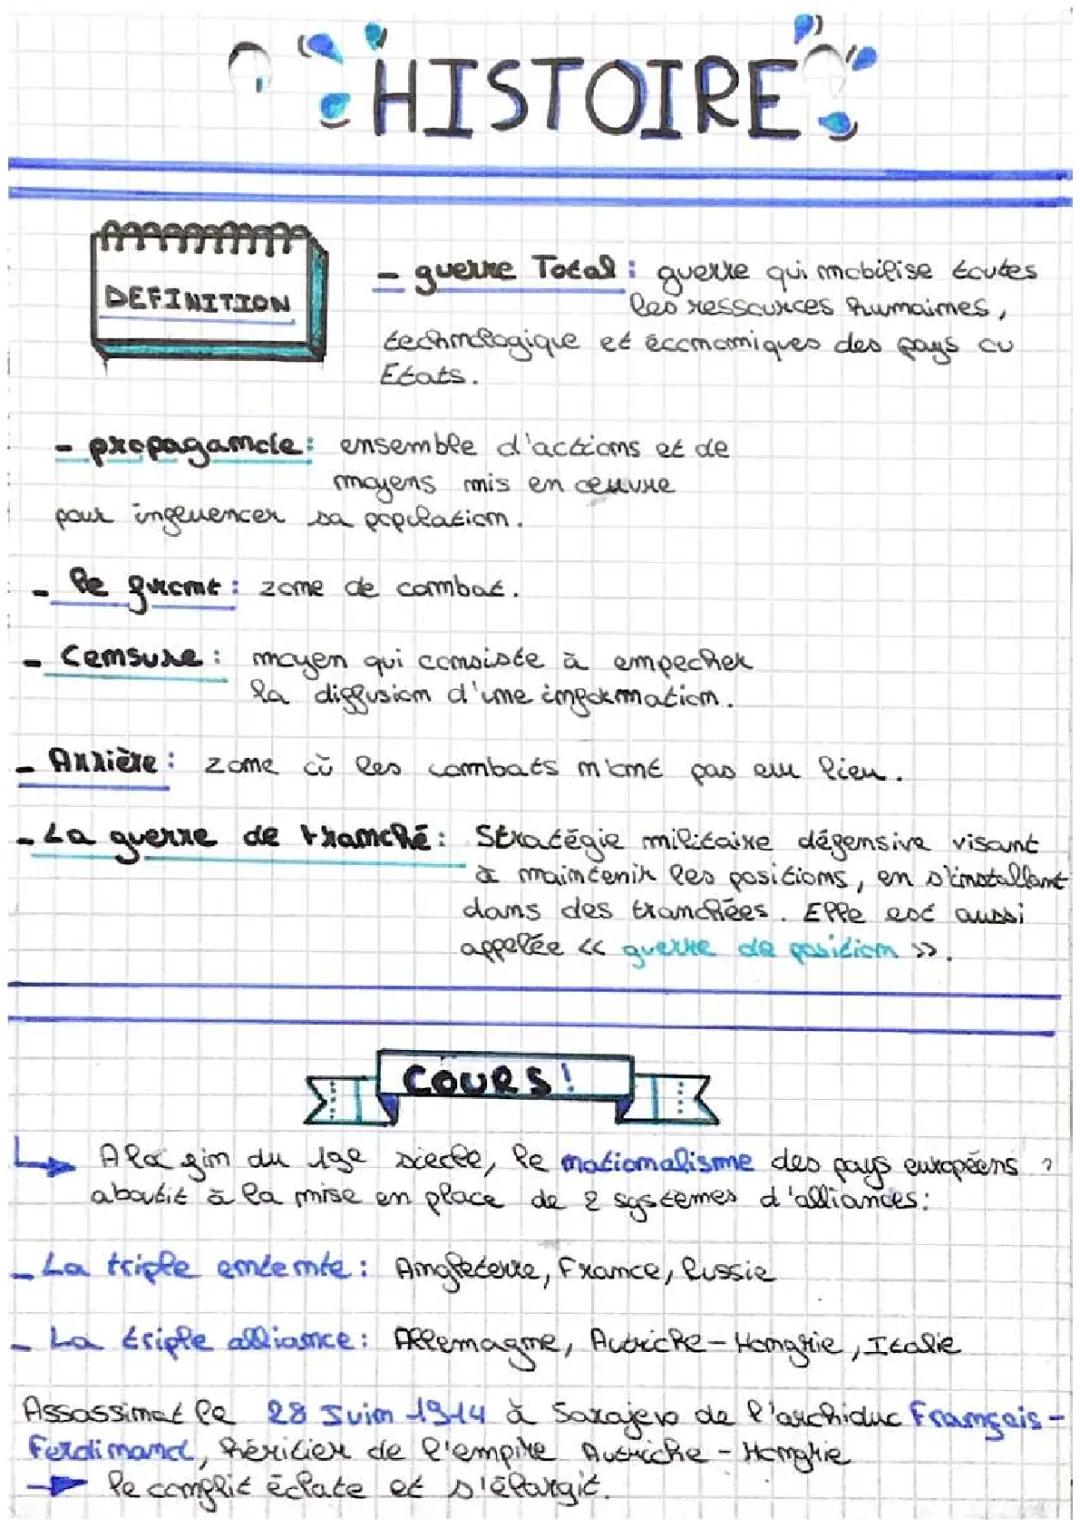 HISTOIRE
DEFINITION
- guerre Total : guerre qui mobilise toutes
les ressources humaines,
technologique et économiques des pays ou
Etats.
- propagande : ensemble d'actions et de
moyens mis en œuvre
pour influencer sa population.
- le front : zone de combat.
- Censure : moyen qui consiste à empecher
la diffusion d'une information.
- Arrière : zone où les combats n'ont pas eu lieu.
- La guerre de tranché : Stratégie militaire défensive visant
à maintenir les positions, en s'installant
dans des tranchées. Elle est aussi
appelée << guerre de position >>.
COURS !
A la fin du 19e siecle, le nationalisme des pays européens
aboutit à la mise en place de 2 systemes d'alliances :
- La triple entente : Angleterre, France, Russie
- La triple alliance : Allemagne, Autriche - Hongrie, Italie
Assassinat le 28 Juin 1914 à Sarajevo de l'archiduc Français -
Ferdinand, héritier de l'empire Autriche - Hongrie
→ le conflit éclate et s'élargit.